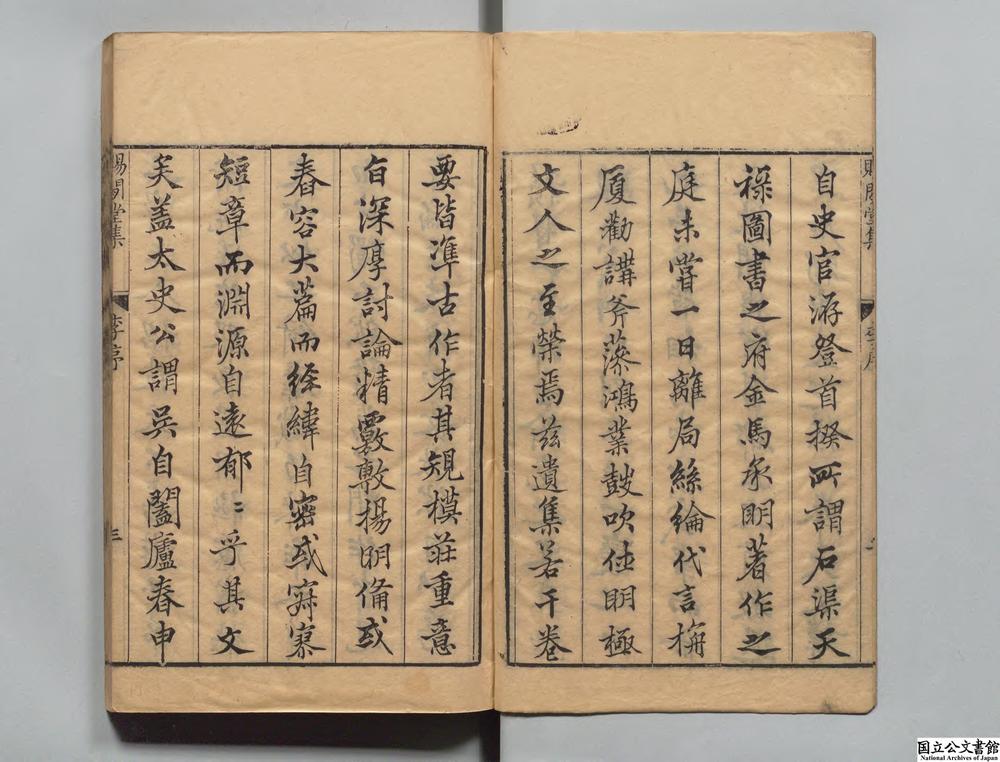 自史官游登首揆所謂石渠天
祿圖書之府金馬承明著作之
庭未嘗一日離局絲綸代言旃
厦勸講斧藻鴻業鼓吹休明極
文人之至榮焉茲遺集若干卷
要皆準古作者其規模莊重意
旨深厚討論精覈敷揚明備或
舂容大篇而經緯自密或寂寥
短章而淵源自遠郁〻乎其文
矣盖太史公謂吳自闔廬春申
賜閒堂集
李序
三
国立公文書館
National Archives of Japan